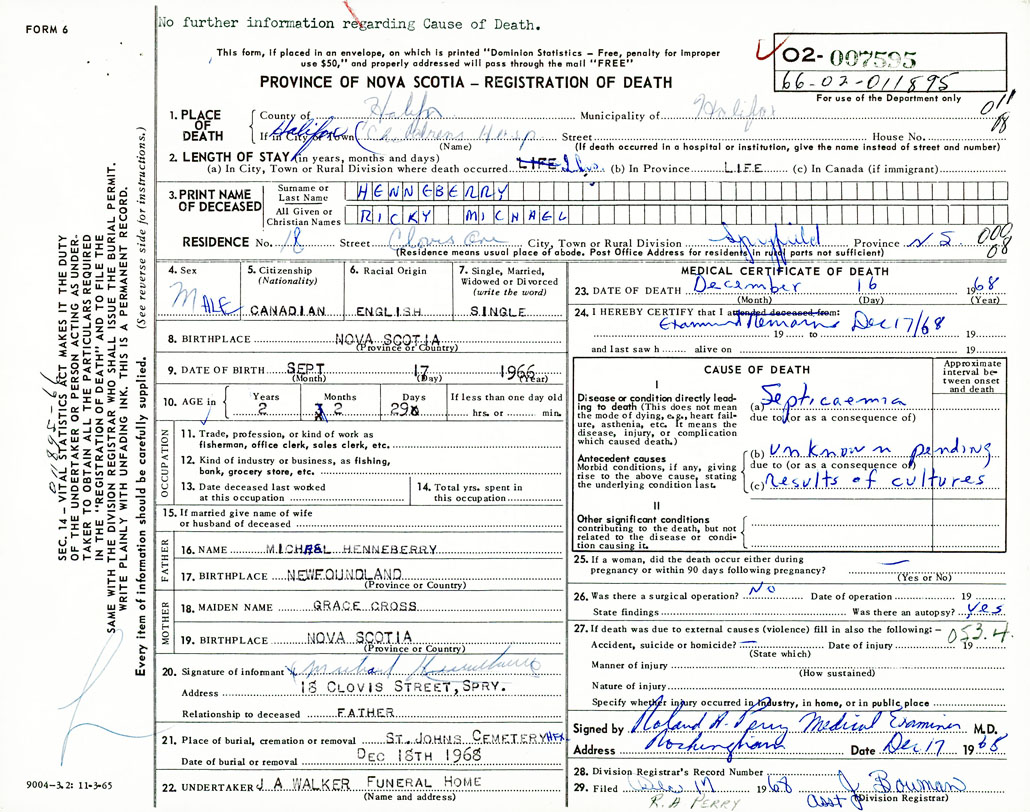 No further information regarding Cause of Death.
FORM 6
This form, if placed in an envelope, on which is printed "Dominion Statistics – Free, penalty for improper
use $50," and properly addressed will pass through the mail "FREE"
02-007595
66-02-011895
For use of the Department only
PROVINCE OF NOVA SCOTIA – REGISTRATION OF DEATH
SEC. 14 – VITAL STATISTICS ACT MAKES IT THE DUTY
OF THE UNDERTAKER OR PERSON ACTING AS UNDER-
TAKER TO OBTAIN ALL THE PARTICULARS REQUIRED
IN THE "REGISTRATION OF DEATH" AND TO FILE THE
SAME WITH THE DIVISION REGISTRAR WHO SHALL ISSUE THE BURIAL PERMIT.
WRITE PLAINLY WITH UNFADING INK. THIS IS A PERMANENT RECORD.
Every item of information should be carefully supplied. (See reverse side for instructions.)
011895-66
1. PLACE OF DEATH
County of Halifax Municipality of Halifax 011
08
If in City or Town Halifax (Childrens Hosp Street House No.
(Name) (If death occurred in a hospital or institution, give the name instead of street and number)
2. LENGTH OF STAY (in years, months and days)
(a) In City, Town or Rural Division where death occurred LIFE (b) In Province LIFE (c) In Canada (if immigrant)
3. PRINT NAME OF DECEASED
Surname or Last Name HENNEBERRY
All Given or Christian Names RICKY MICHAEL
RESIDENCE No. 18 Street Clovis Ave City, Town or Rural Division Spryfield Province NS 000
08
(Residence means usual place of abode. Post Office Address for residents in rural parts not sufficient)
4. Sex MALE
5. Citizenship (Nationality) CANADIAN
6. Racial Origin ENGLISH
7. Single, Married, Widowed or Divorced (write the word) SINGLE
8. BIRTHPLACE NOVA SCOTIA
(Province or Country)
9. DATE OF BIRTH SEPT 17 1966
(Month) (Day) (Year)
10. AGE in Years 2 Months 2 Days 29 If less than one day old hrs. or min.
OCCUPATION
11. Trade, profession, or kind of work as
fisherman, office clerk, sales clerk, etc.
12. Kind of industry or business, as fishing,
bank, grocery store, etc.
13. Date deceased last worked
at this occupation
14. Total yrs. spent in
this occupation
15. If married give name of wife
or husband of deceased
FATHER
16. NAME MICHAEL HENNEBERRY
17. BIRTHPLACE NEWFOUNDLAND
(Province or Country)
MOTHER
18. MAIDEN NAME GRACE CROSS
19. BIRTHPLACE NOVA SCOTIA
(Province or Country)
20. Signature of informant Michael Henneberry
Address 18 CLOVIS STREET, SPRY.
Relationship to deceased FATHER
21. Place of burial, cremation or removal ST. JOHNS CEMETERY HFX
Date of burial or removal DEC 18TH 1968
22. UNDERTAKER J A WALKER FUNERAL HOME
(Name and address)
9004-3.2: 11-3-65
MEDICAL CERTIFICATE OF DEATH
23. DATE OF DEATH December 16 1968
(Month) (Day) (Year)
24. I HEREBY CERTIFY that I attended deceased from:
Examined Remains Dec 17/68
19 to 19
and last saw h alive on 19
CAUSE OF DEATH
Approximate interval between onset and death
I
Disease or condition directly lead-
ing to death (This does not mean
the mode of dying, e.g., heart fail-
ure, asthenia, etc. It means the
disease, injury, or complication
which caused death.)
(a) Septicaemia
due to (or as a consequence of)
Antecedent causes
Morbid conditions, if any, giving
rise to the above cause, stating
the underlying condition last.
(b) unknown pending
due to (or as a consequence of)
(c) results of cultures
II
Other significant conditions
contributing to the death, but not
related to the disease or condi-
tion causing it.
25. If a woman, did the death occur either during
pregnancy or within 90 days following pregnancy? —
(Yes or No)
26. Was there a surgical operation? No Date of operation 19
State findings Was there an autopsy? yes
27. If death was due to external causes (violence) fill in also the following:– 053.4.
Accident, suicide or homicide? — Date of injury 19
(State which)
Manner of injury
(How sustained)
Nature of injury
Specify whether injury occurred in industry, in home, or in public place
Signed by Roland A. Perry Medical Examiner M.D.
Address Rockingham Date Dec 17 1968
28. Division Registrar's Record Number
29. Filed Dec 17 1968 J Bowman
R. A PERRY Asst (Division Registrar)